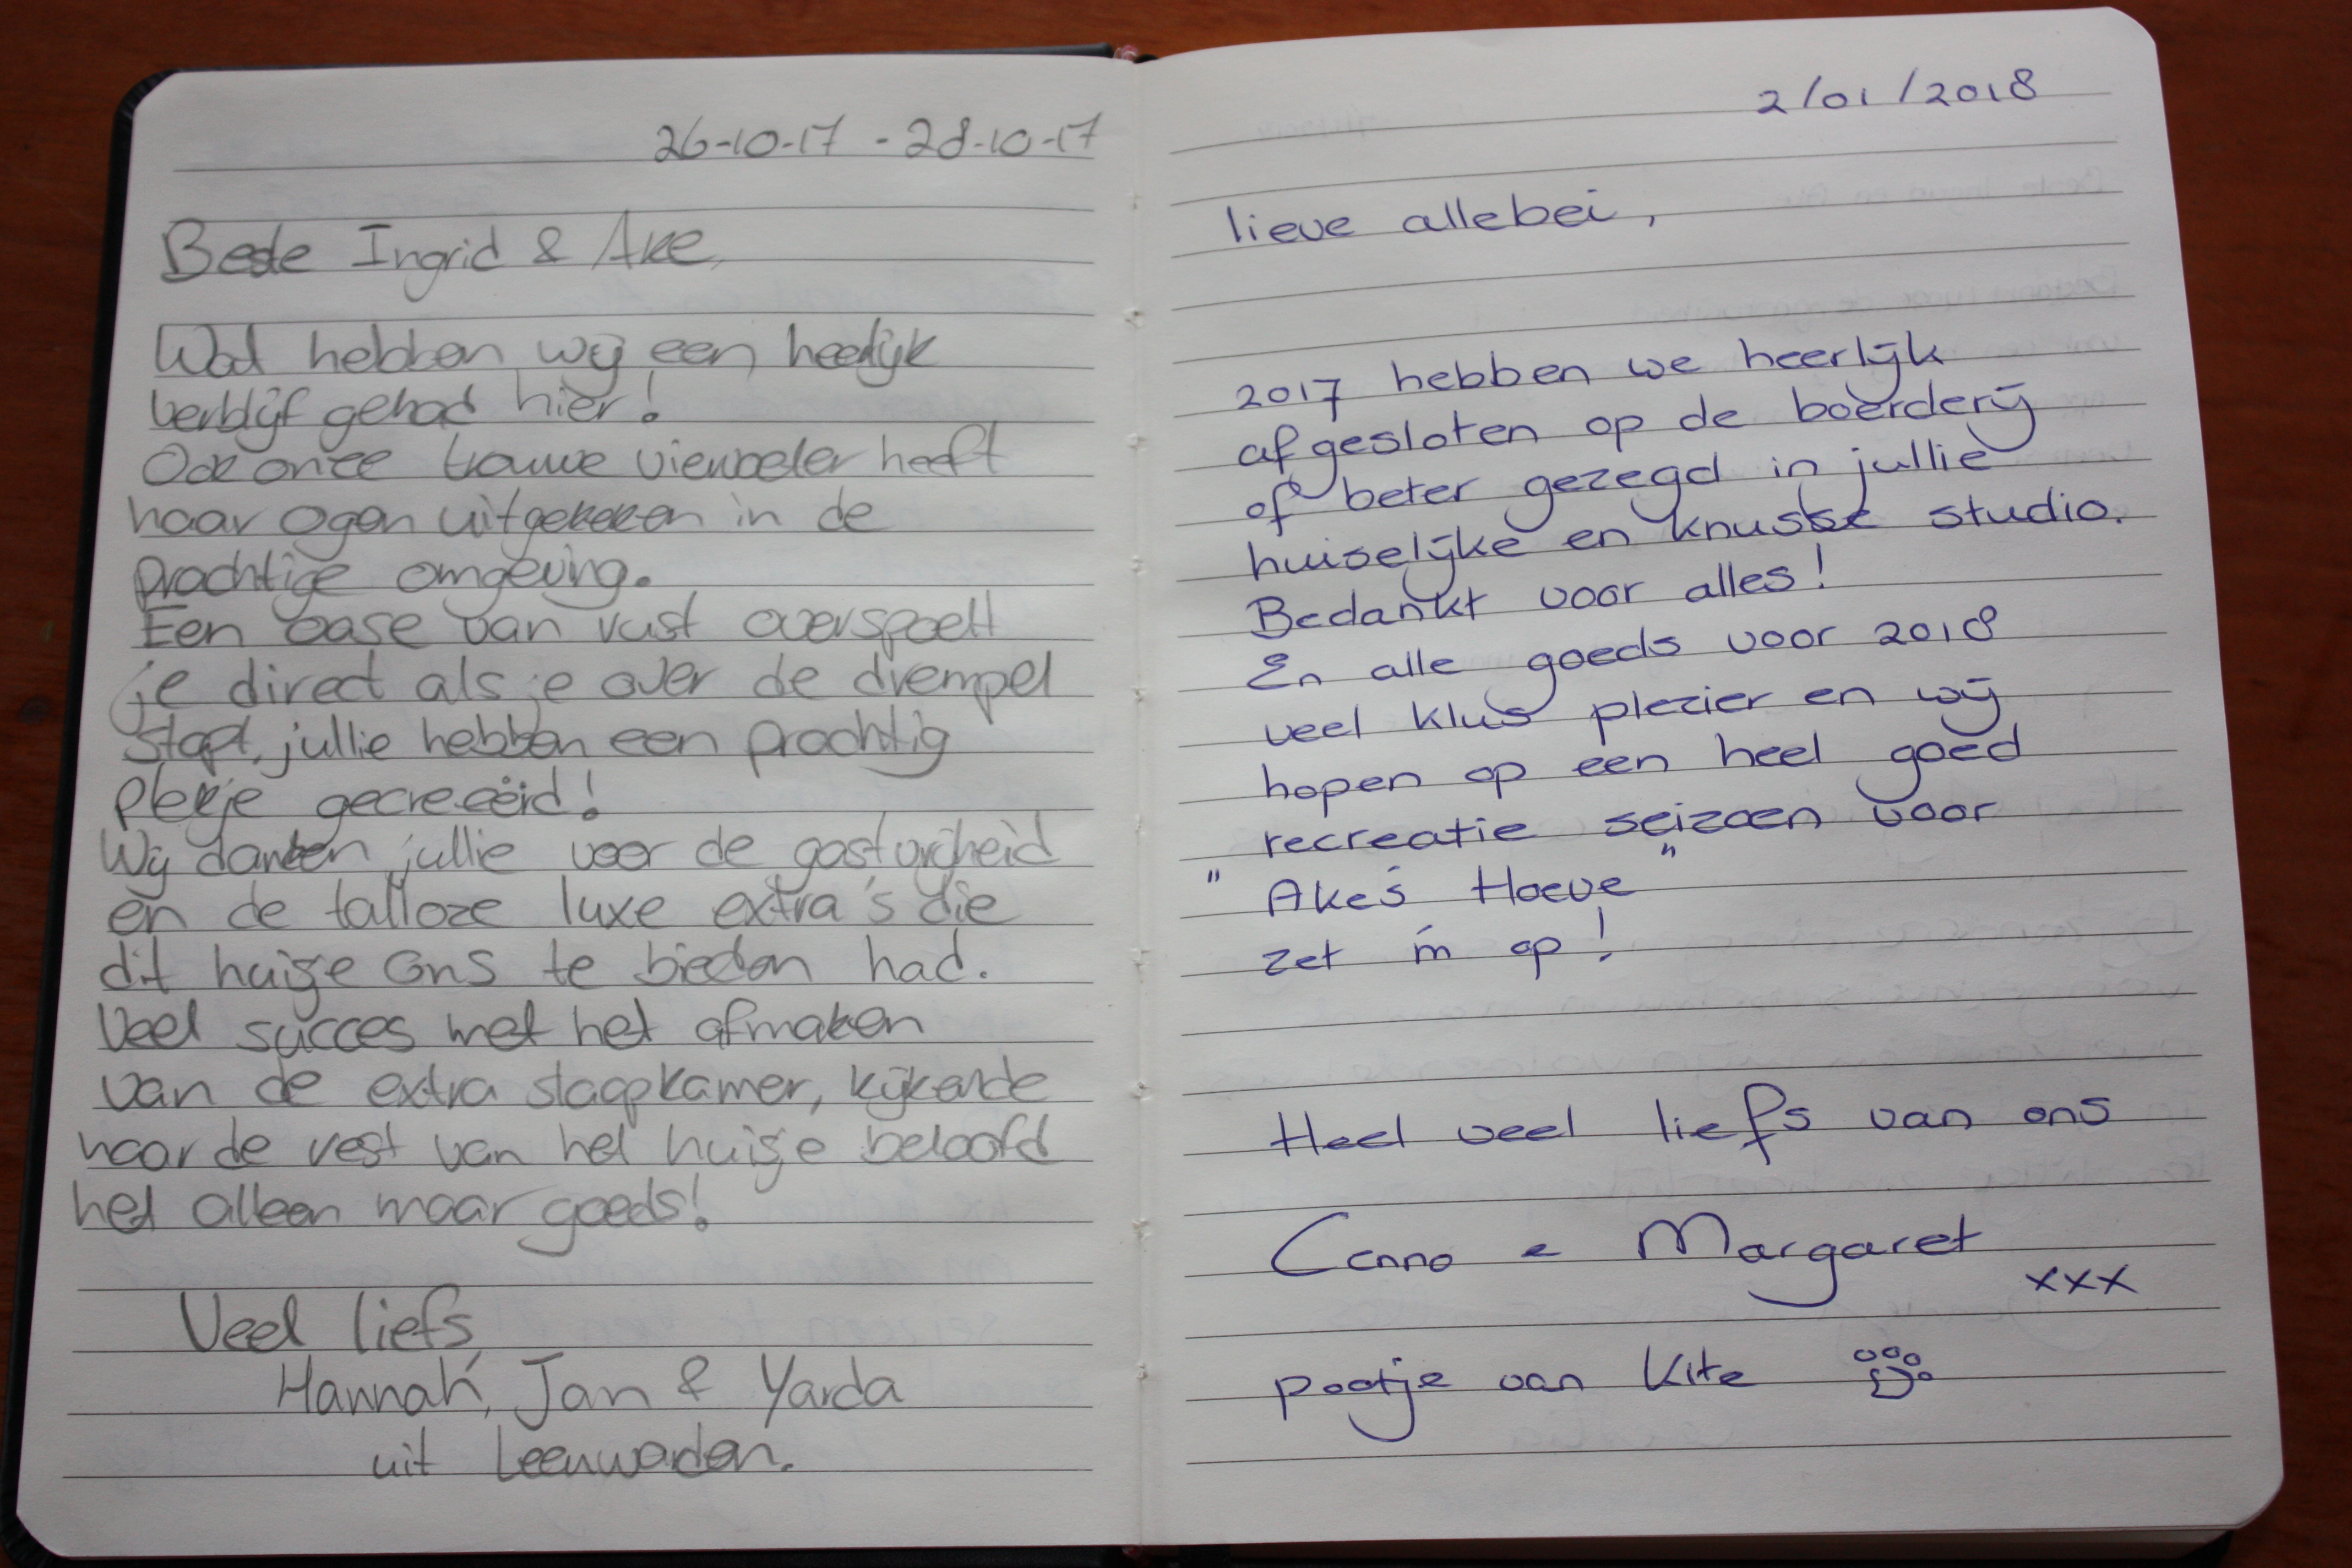 26-10-17 - 28-10-17
Beste Ingrid & Ake,
Wat hebben wij een heerlijk
verblijf gehad hier!
Ook onze trouwe viervoeter heeft
haar ogen uitgekeken in de
prachtige omgeving.
Een oase van rust overspoelt
je direct als je over de drempel
stapt, jullie hebben een prachtig
plekje gecreeërd!
Wij danken jullie voor de gastvrijheid
en de talloze luxe extra's die
dit huisje ons te bieden had.
Veel succes met het afmaken
van de extra slaapkamer, kijkende
naar de rest van het huisje beloofd
het alleen maar goeds!
Veel liefs,
Hannah, Jan & Yarda
uit Leeuwarden.
2/01/2018
lieve allebei,
2017 hebben we heerlijk
afgesloten op de boerderij
of beter gezegd in jullie
huiselijke en knusse studio.
Bedankt voor alles!
En alle goeds voor 2018
veel klus plezier en wij
hopen op een heel goed
recreatie seizoen voor
" Ake's Hoeve "
zet 'm op!
Heel veel liefs van ons
e Margaret
xxx
pootje van Kite